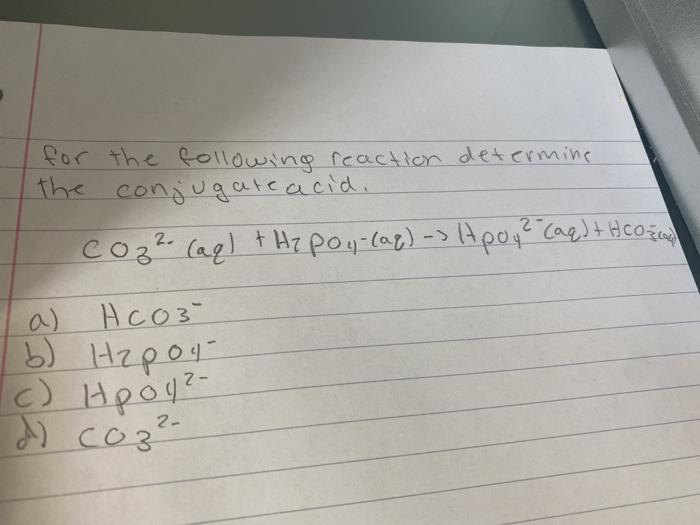 for the following reaction determine
the conjugate acid.
CO3²⁻ (aq) + H2PO4⁻(aq) -> HPO4²⁻(aq) + HCO3⁻(aq)
a) HCO3⁻
b) H2PO4⁻
c) HPO4²⁻
d) CO3²⁻